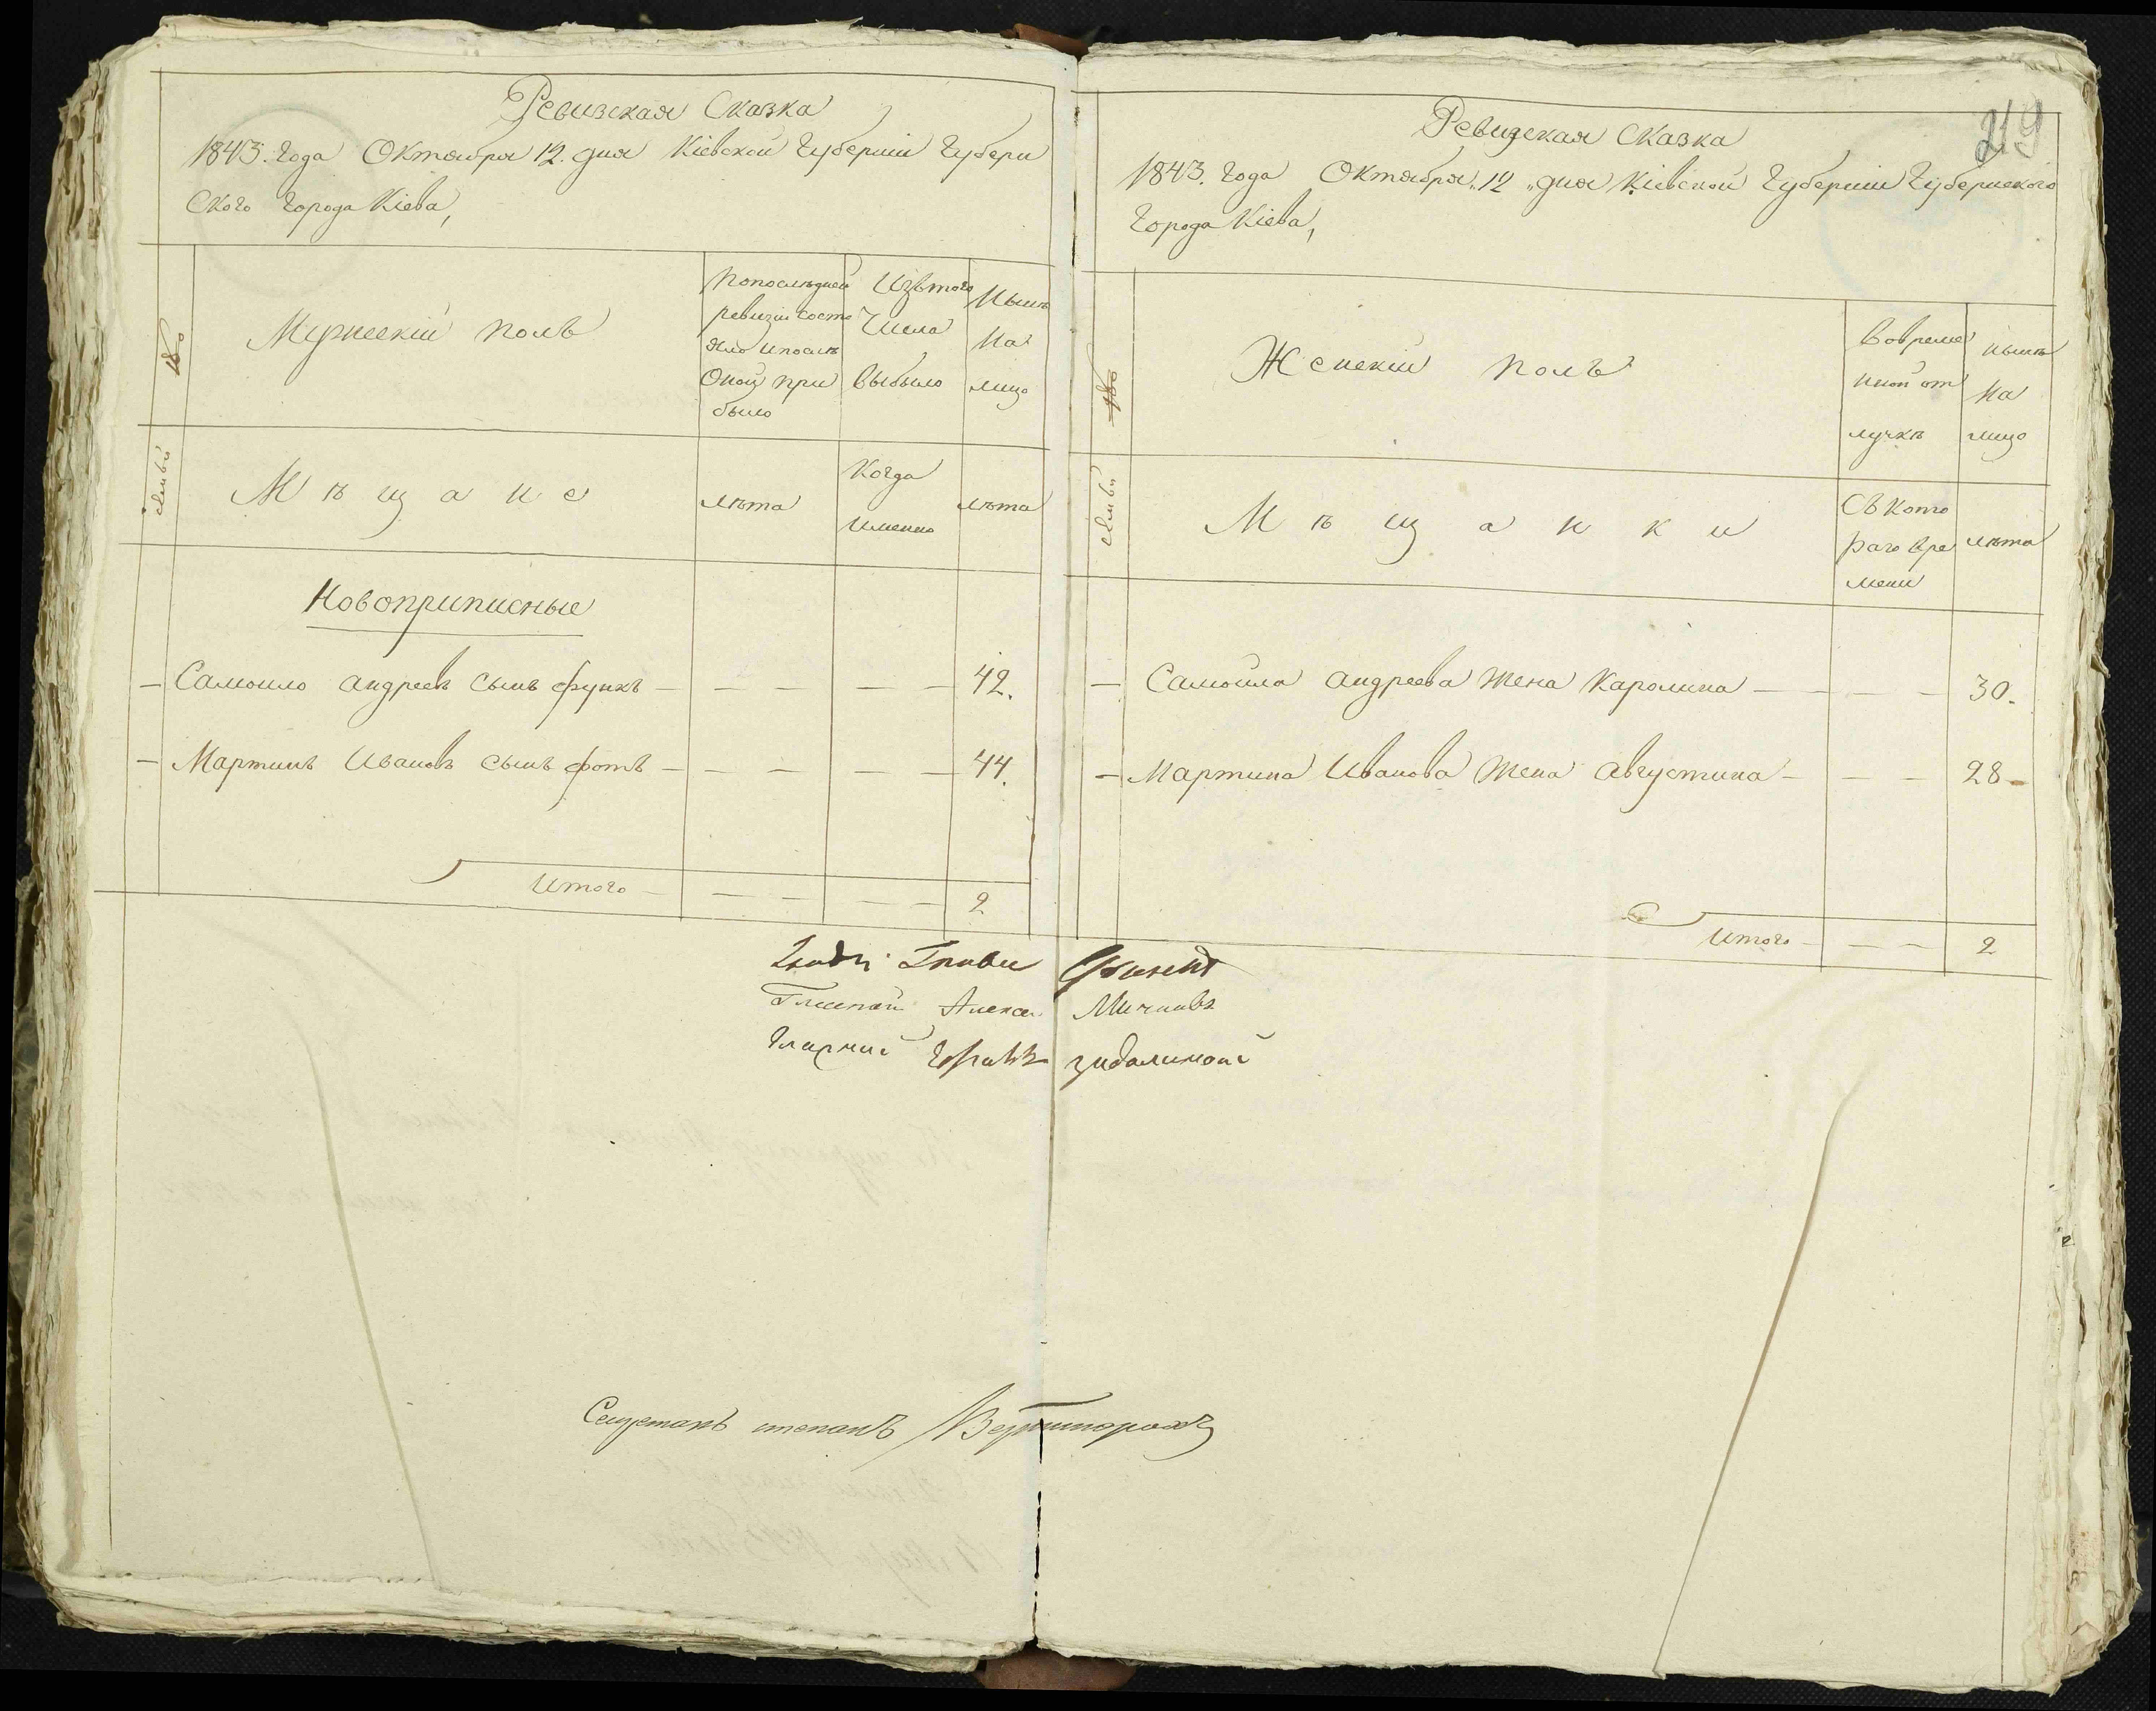 Ревизская Сказка
1843. Года Октября 12. дня Кіевской Губерніи Губерн
ского города Кіева,
№
Мужескій полъ
Попоследней
ревизіи состо
яло и после
Оной при
было
Изътого
Числа
выбыло
Ныне
На
лицо
семьи
Мѣщане
лѣта
Когда
именно
лѣта
Новоприписные
Самоило андреевъ сынъ функъ 42.
Мартинъ Ивановъ сынъ фотъ 44.
Итого 2
219
Ревизская Сказка
1843. Года Октября „12„ дня Кіевской Губерніи Губернского
города Кіева,
№
Женскій полъ
Вовреме
нной от
лучкѣ
нынѣ
На
лицо
семьи
Мѣщанки
Съ кото
раго вре
мени
лѣта
Самойла андреева жена Каролина 30.
Мартина Иванова жена августина 28
Итого 2
Гласный
степанъ